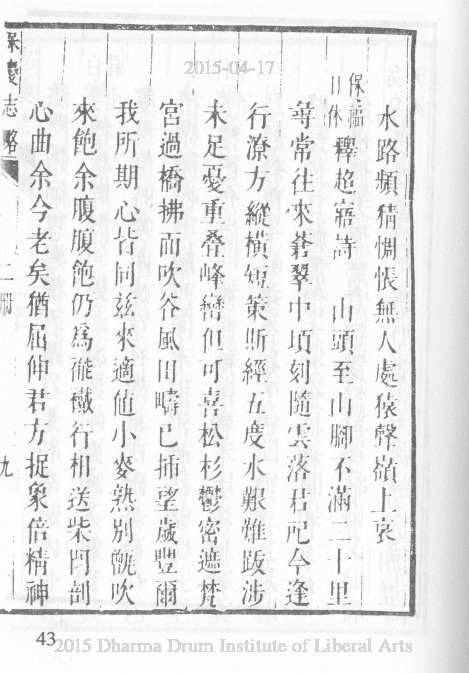 2015-04-17
水路頻猜惆悵無人處猿聲嶺上哀
保福
日休
釋超寤詩 山頭至山腳不滿二十里
尋常往來蒼翠中頃刻隨雲落君配今逢
行潦方縱橫短策斯經五度水艱難跋涉
未足憂重叠峰巒但可喜松杉鬱密遮梵
宮過橋拂面吹谷風田疇已插望歲豐爾
我所期心皆同茲來適値小麥熟別甑吹
來飽余腹腹飽仍爲行相送柴門剖
心曲余今老矣猶屈伸君方捉象倍精神
保慶志略 二 九
43
2015 Dharma Drum Institute of Liberal Arts